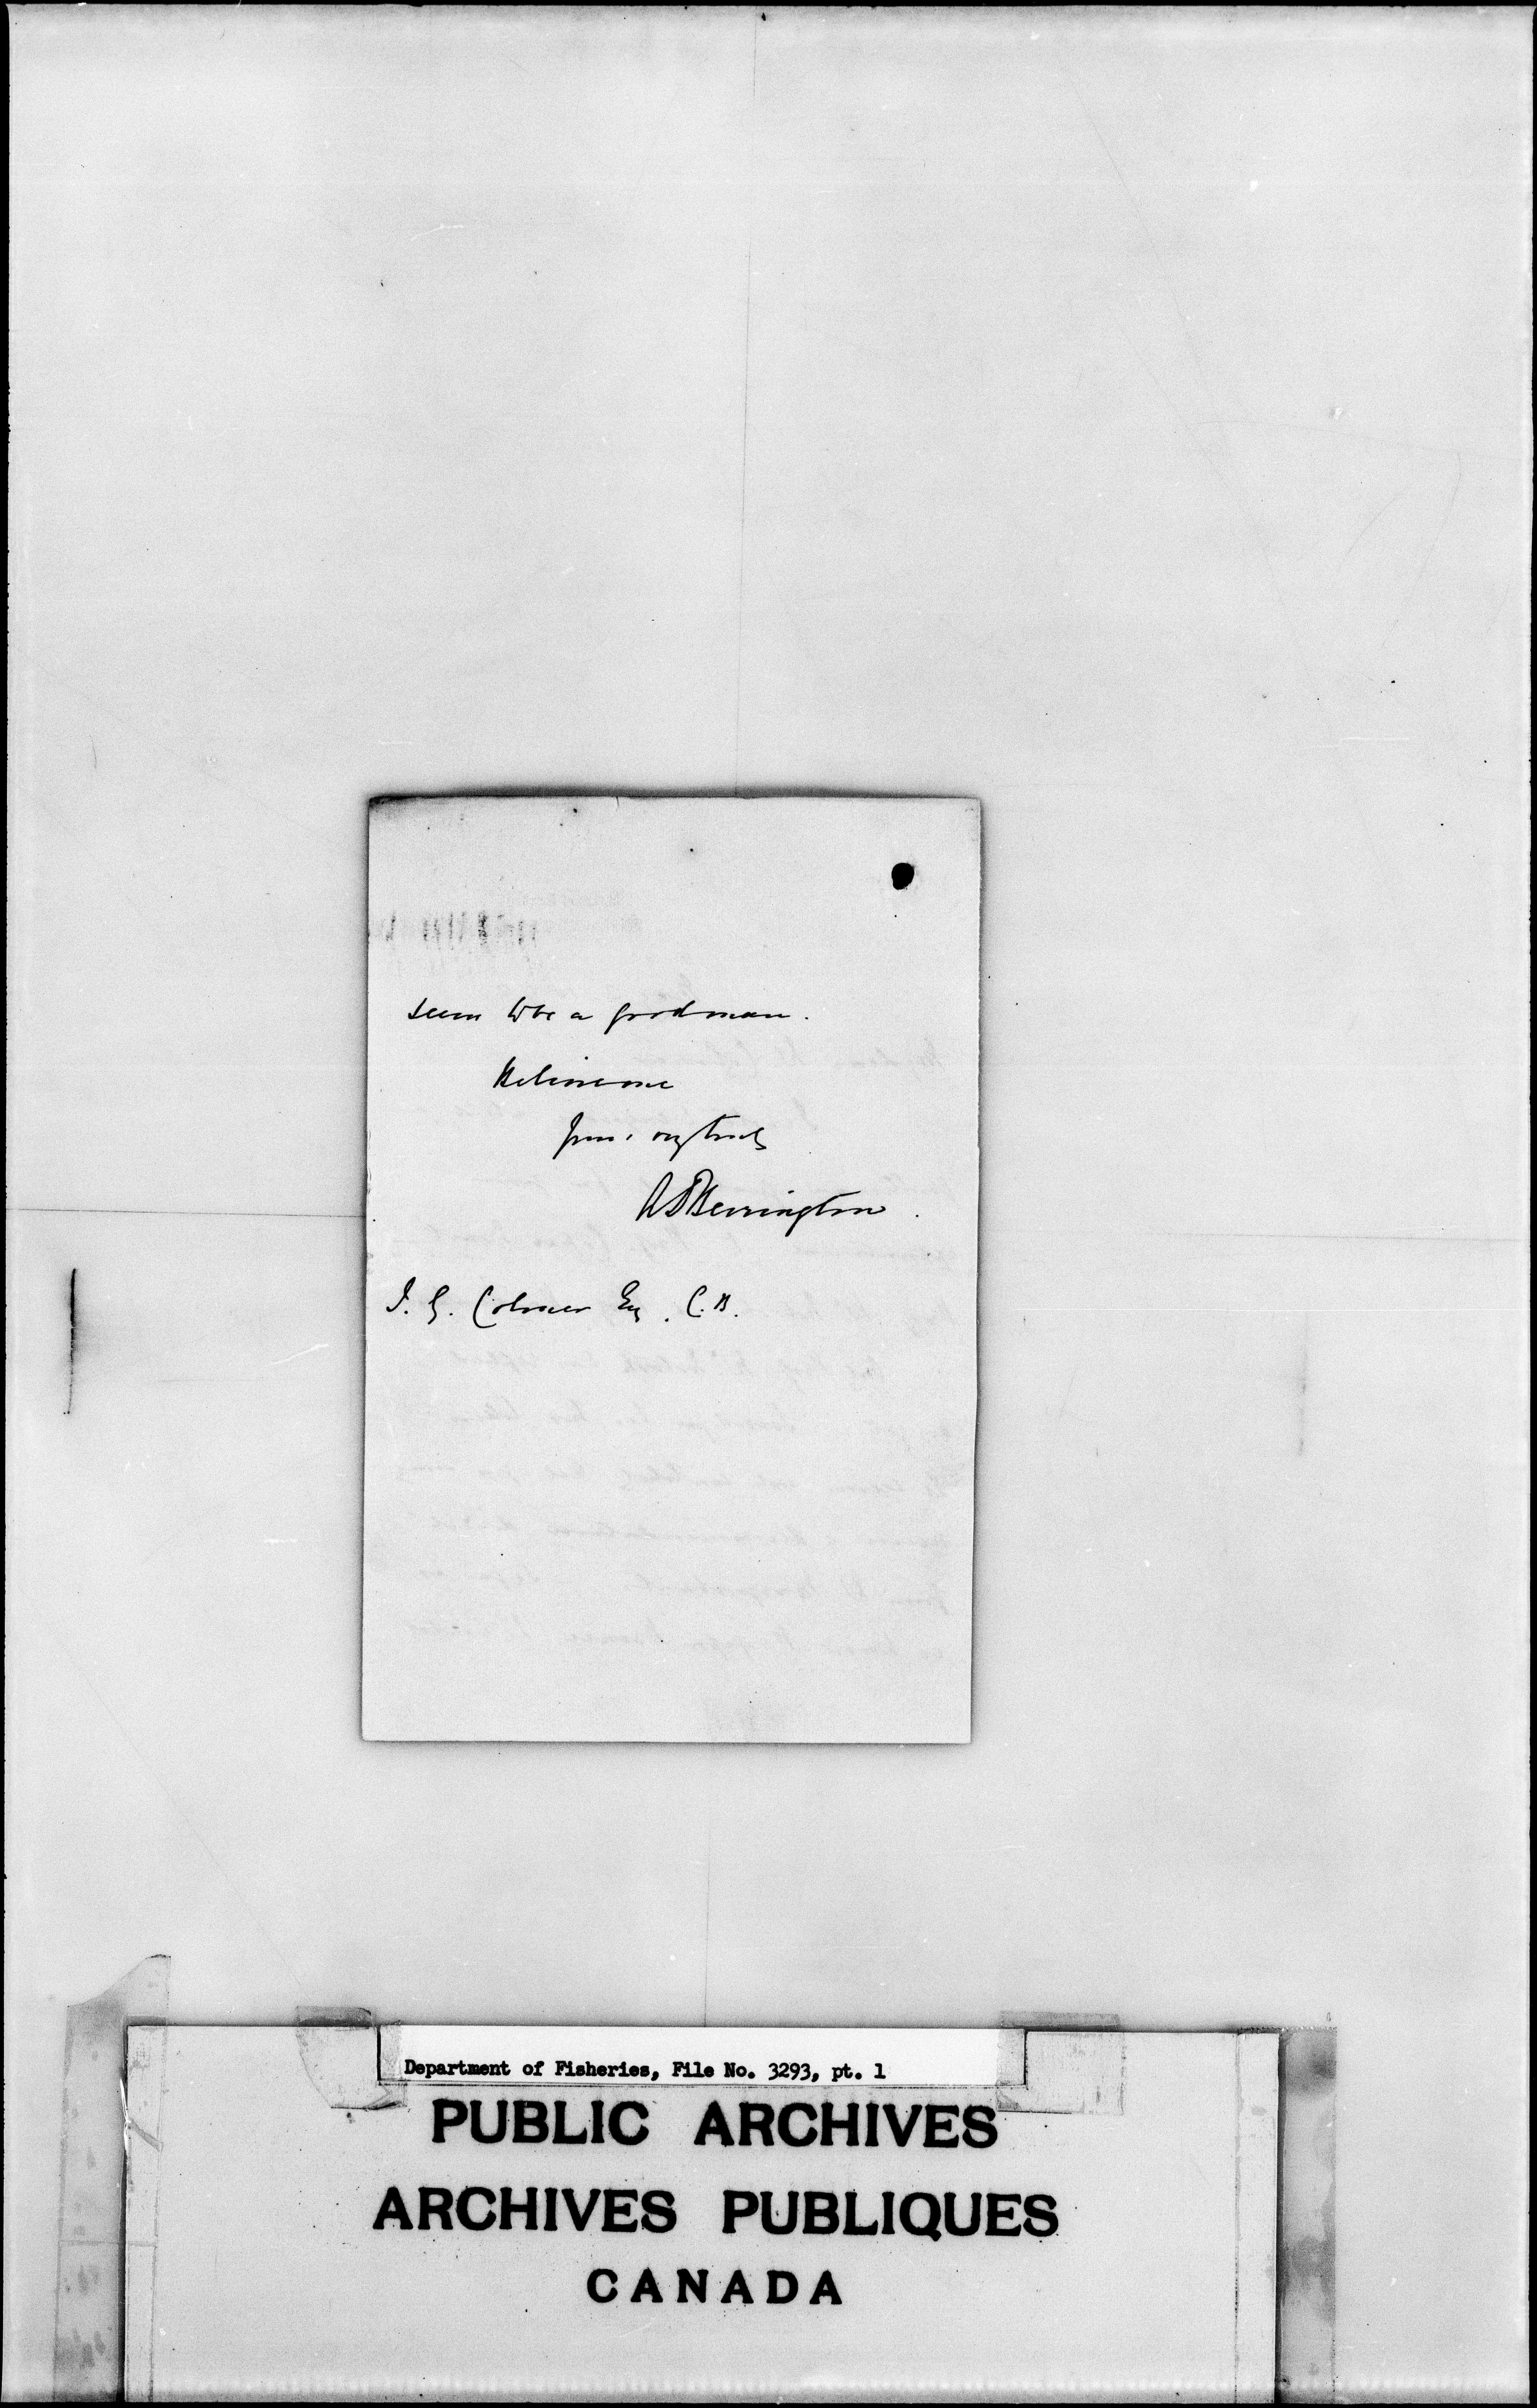 seem to be a good man.
Believe me
Yours very truly
A D Berrington.
J. G. Colmer Esq. C.B.
Department of Fisheries, File No. 3293, pt. 1
PUBLIC ARCHIVES
ARCHIVES PUBLIQUES
CANADA